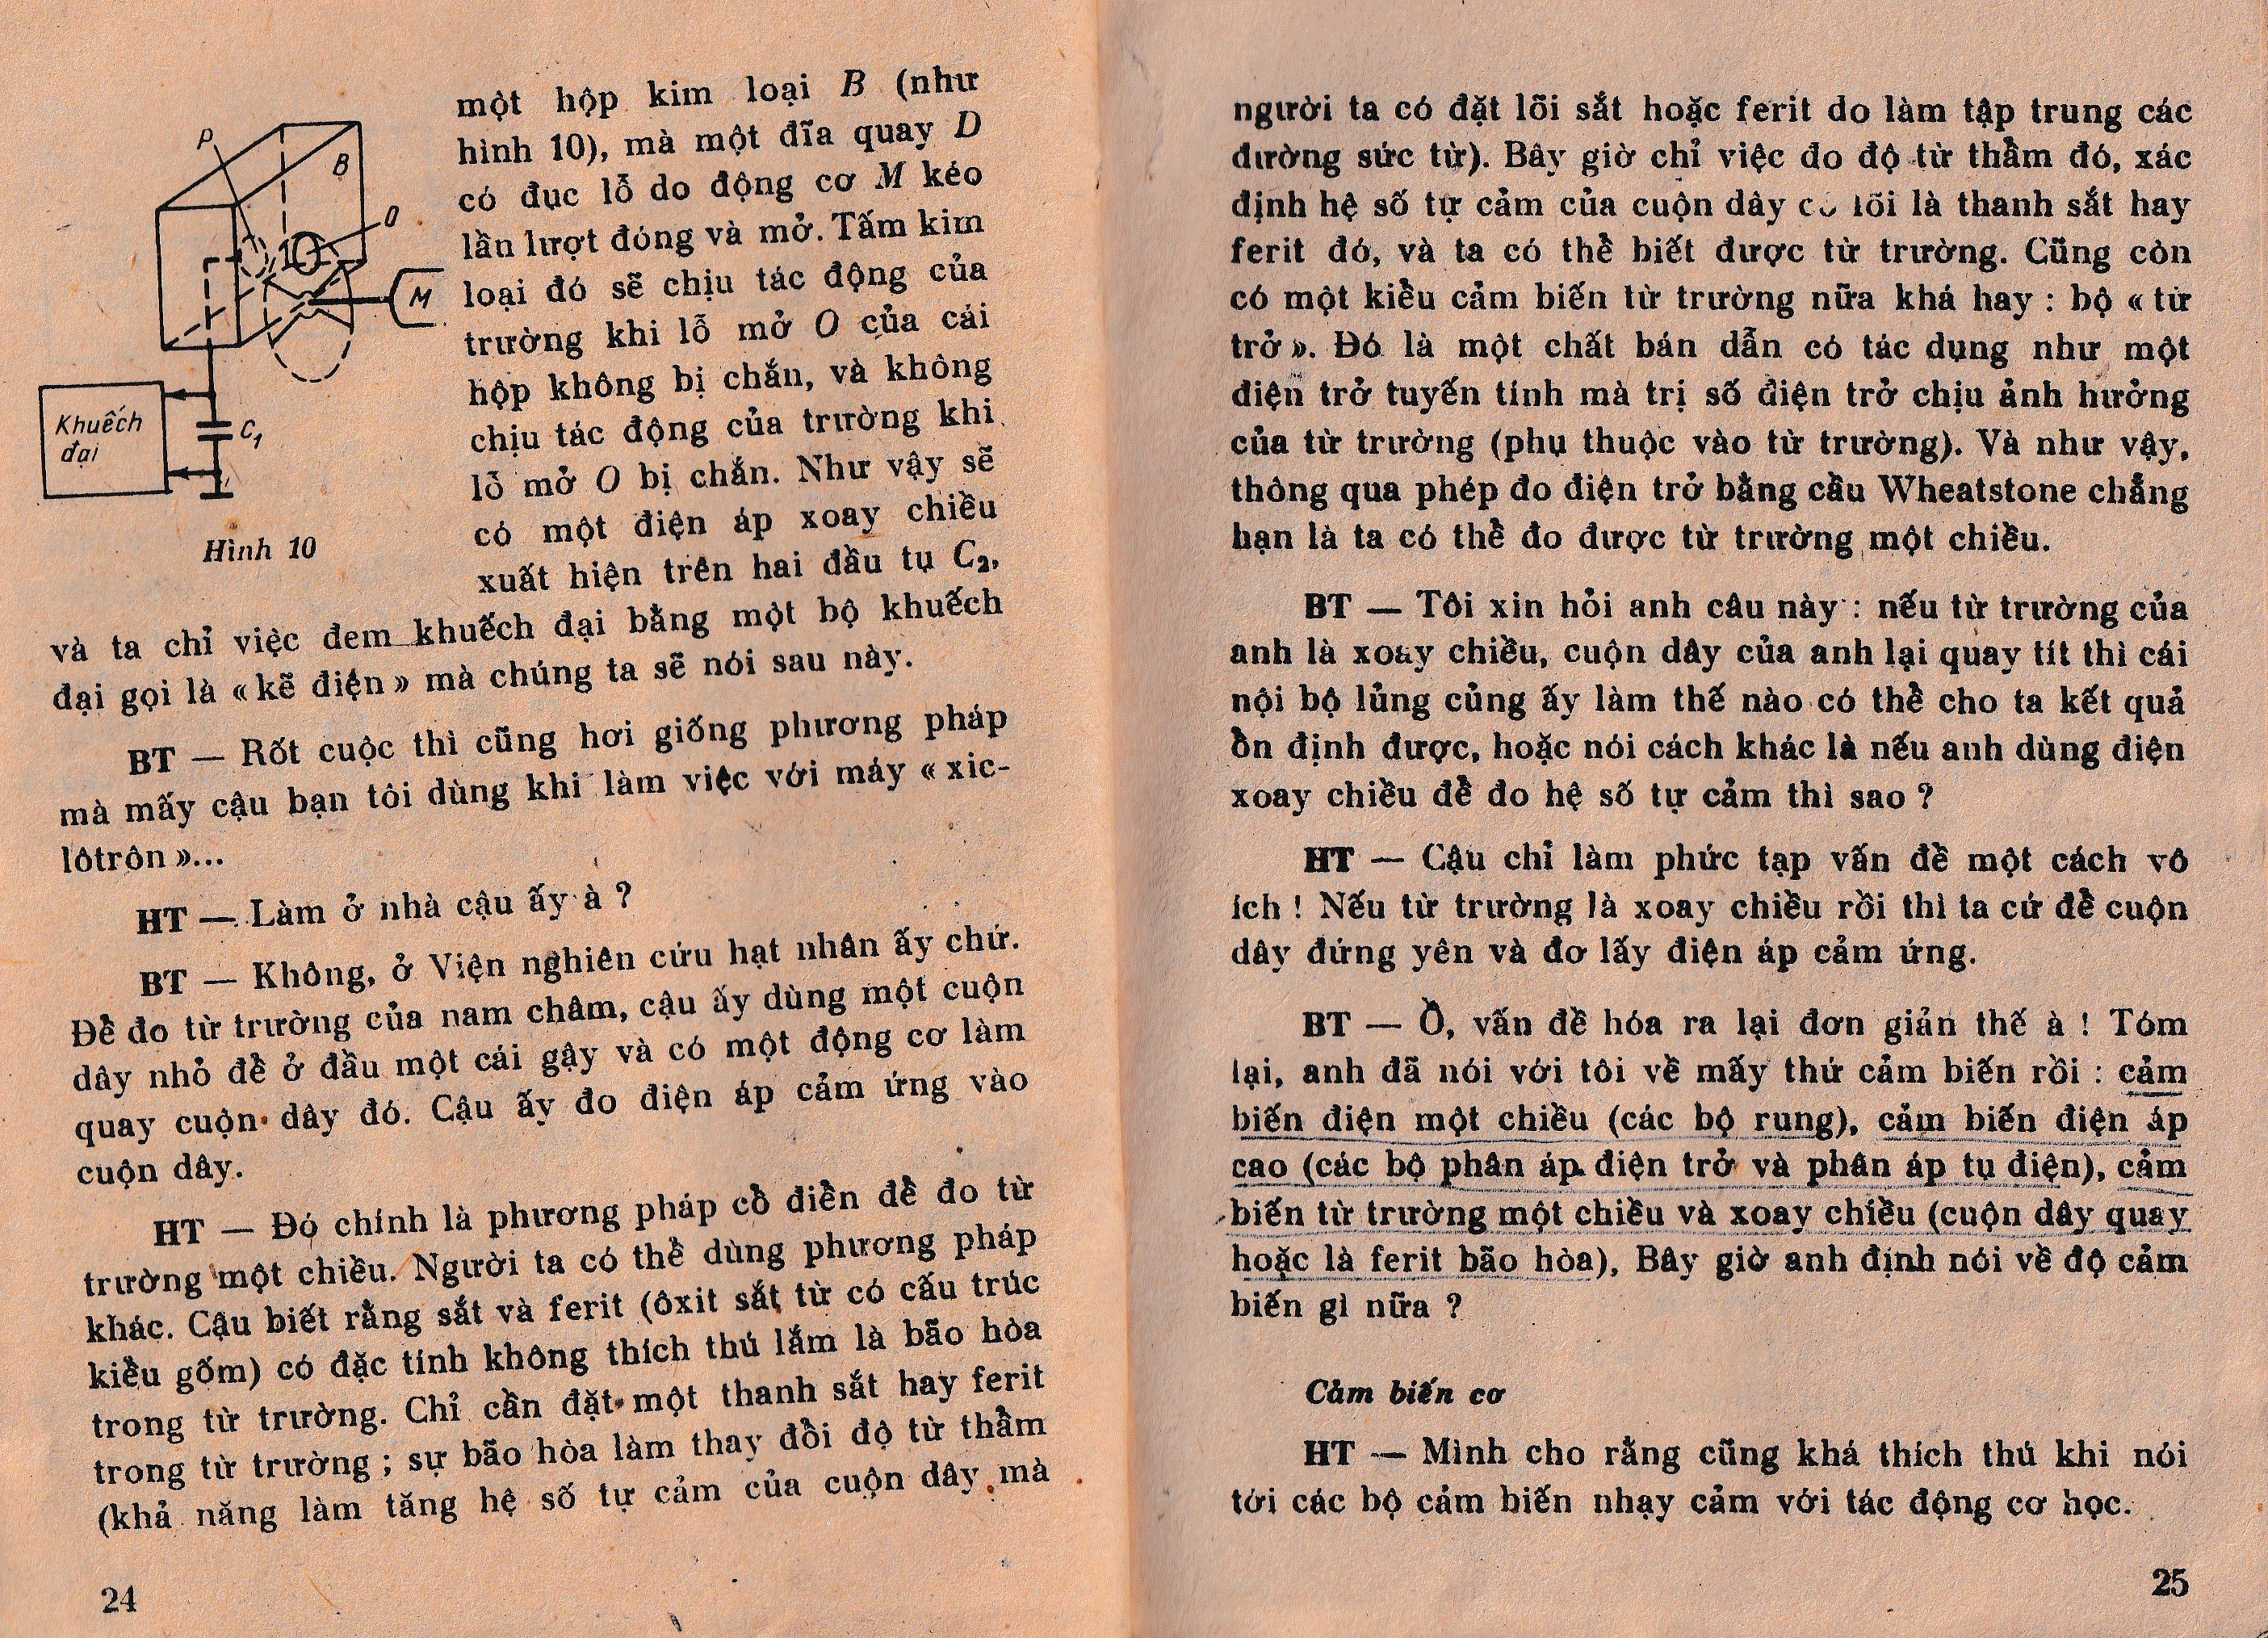 P
B
O
M
Khuếch
đại
C₁
Hình 10
một hộp kim loại B (như
hình 10), mà một đĩa quay D
có đục lỗ do động cơ M kéo
lần lượt đóng và mở. Tấm kim
loại đó sẽ chịu tác động của
trường khi lỗ mở O của cái
hộp không bị chắn, và không
chịu tác động của trường khi
lỗ mở O bị chắn. Như vậy sẽ
có một điện áp xoay chiều
xuất hiện trên hai đầu tụ C₂,
và ta chỉ việc đem khuếch đại bằng một bộ khuếch
đại gọi là « kẽ điện » mà chúng ta sẽ nói sau này.
BT — Rốt cuộc thì cũng hơi giống phương pháp
mà mấy cậu bạn tôi dùng khi làm việc với máy « xic-
lôtrôn »...
HT — Làm ở nhà cậu ấy à ?
BT — Không, ở Viện nghiên cứu hạt nhân ấy chứ.
Để đo từ trường của nam châm, cậu ấy dùng một cuộn
dây nhỏ để ở đầu một cái gậy và có một động cơ làm
quay cuộn dây đó. Cậu ấy đo điện áp cảm ứng vào
cuộn dây.
HT — Đó chính là phương pháp cổ điển để đo từ
trường một chiều. Người ta có thể dùng phương pháp
khác. Cậu biết rằng sắt và ferit (ôxit sắt từ có cấu trúc
kiểu gốm) có đặc tính không thích thú lắm là bão hòa
trong từ trường. Chỉ cần đặt một thanh sắt hay ferit
trong từ trường ; sự bão hòa làm thay đổi độ từ thẩm
(khả năng làm tăng hệ số tự cảm của cuộn dây mà
24
người ta có đặt lõi sắt hoặc ferit do làm tập trung các
đường sức từ). Bây giờ chỉ việc đo độ từ thẩm đó, xác
định hệ số tự cảm của cuộn dây có lõi là thanh sắt hay
ferit đó, và ta có thể biết được từ trường. Cũng còn
có một kiểu cảm biến từ trường nữa khá hay : bộ « từ
trở ». Đó là một chất bán dẫn có tác dụng như một
điện trở tuyến tính mà trị số điện trở chịu ảnh hưởng
của từ trường (phụ thuộc vào từ trường). Và như vậy,
thông qua phép đo điện trở bằng cầu Wheatstone chẳng
hạn là ta có thể đo được từ trường một chiều.
BT — Tôi xin hỏi anh câu này : nếu từ trường của
anh là xoay chiều, cuộn dây của anh lại quay tít thì cái
nội bộ lủng củng ấy làm thế nào có thể cho ta kết quả
ổn định được, hoặc nói cách khác là nếu anh dùng điện
xoay chiều để đo hệ số tự cảm thì sao ?
HT — Cậu chỉ làm phức tạp vấn đề một cách vô
ích ! Nếu từ trường là xoay chiều rồi thì ta cứ để cuộn
dây đứng yên và đo lấy điện áp cảm ứng.
BT — Ồ, vấn đề hóa ra lại đơn giản thế à ! Tóm
lại, anh đã nói với tôi về mấy thứ cảm biến rồi : cảm
biến điện một chiều (các bộ rung), cảm biến điện áp
cao (các bộ phân áp điện trở và phân áp tụ điện), cảm
biến từ trường một chiều và xoay chiều (cuộn dây quay
hoặc là ferit bão hòa), Bây giờ anh định nói về độ cảm
biến gì nữa ?
Cảm biến cơ
HT — Mình cho rằng cũng khá thích thú khi nói
tới các bộ cảm biến nhạy cảm với tác động cơ học.
25